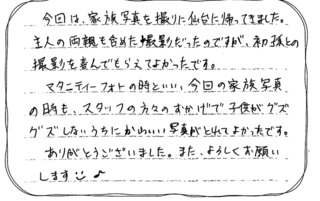 今回は、家族写真を撮りに仙台に帰ってきました。
主人の両親も含めた撮影だったのですが、初孫との
撮影を喜んでもらえてよかったです。
マタニティーフォトの時といい、今回の家族写真
の時も、スタッフの方々のおかげで子供がグズ
グズしないうちにかわいい写真がとれてよかったです。
ありがとうございました。また、よろしくお願い
します☺♪